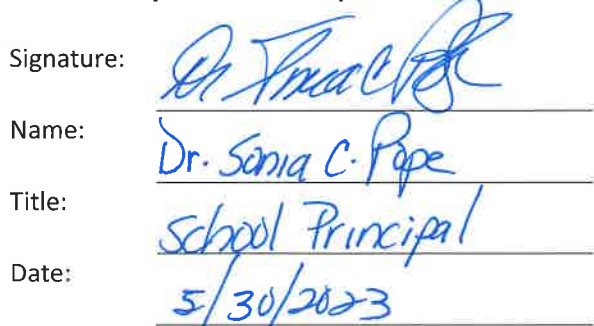 Signature: Dr Sonia C Pope
Name: Dr. Sonia C. Pope
Title: School Principal
Date: 5/30/2023